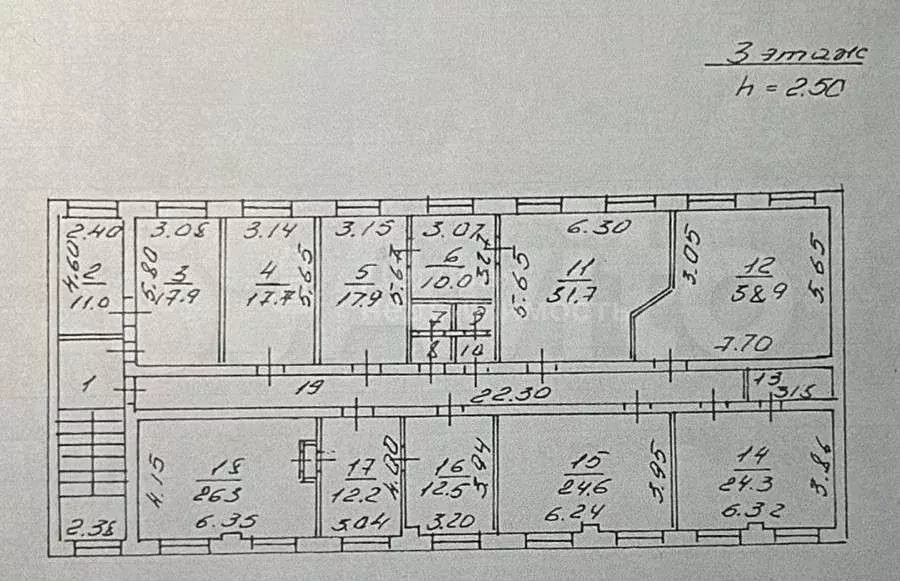 3 этаж
h = 2.50
2.40
3.08
3.14
3.15
3.07
6.30
4.60
2
11.0
5.80
3
17.9
4
17.7
5.65
5
17.9
5.67
6
10.0
3.27
5.65
11
31.7
3.05
12
38.9
5.65
7
9
8
10
7.70
1
19
22.30
13
3.15
4.15
18
26.3
6.35
17
12.2
4.00
3.04
16
12.5
3.94
3.20
15
24.6
6.24
3.95
14
24.3
6.32
3.86
2.38